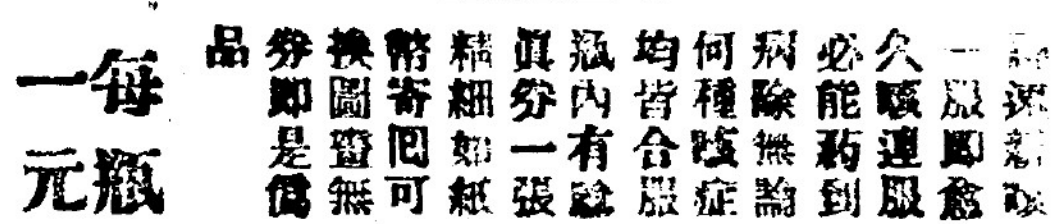 新咳
一服即愈
久咳連服
必能葯到
病除無論
何種咳症
均皆合服
瓶內有驗
眞券一張
精細如紙
幣寄囘可
換圖畫無
券即是僞
品
每瓶
一元